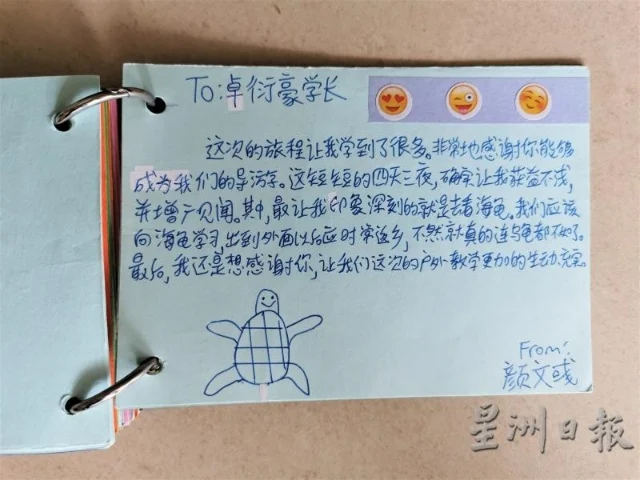 To:卓衍豪学长
这次的旅程让我学到了很多。非常地感谢你能够
成为我们的导游子。这短短的四天三夜,确实让我获益不浅,
并增广见闻。其中,最让我印象深刻的就是去看海龟。我们应该
向海龟学习,出到外面以后应时常返乡,不然就真的连乌龟都不如了。
最后,我还是想感谢你,让我们这次的户外教学更加的生动、充实。
From:
颜文彧
星洲日报